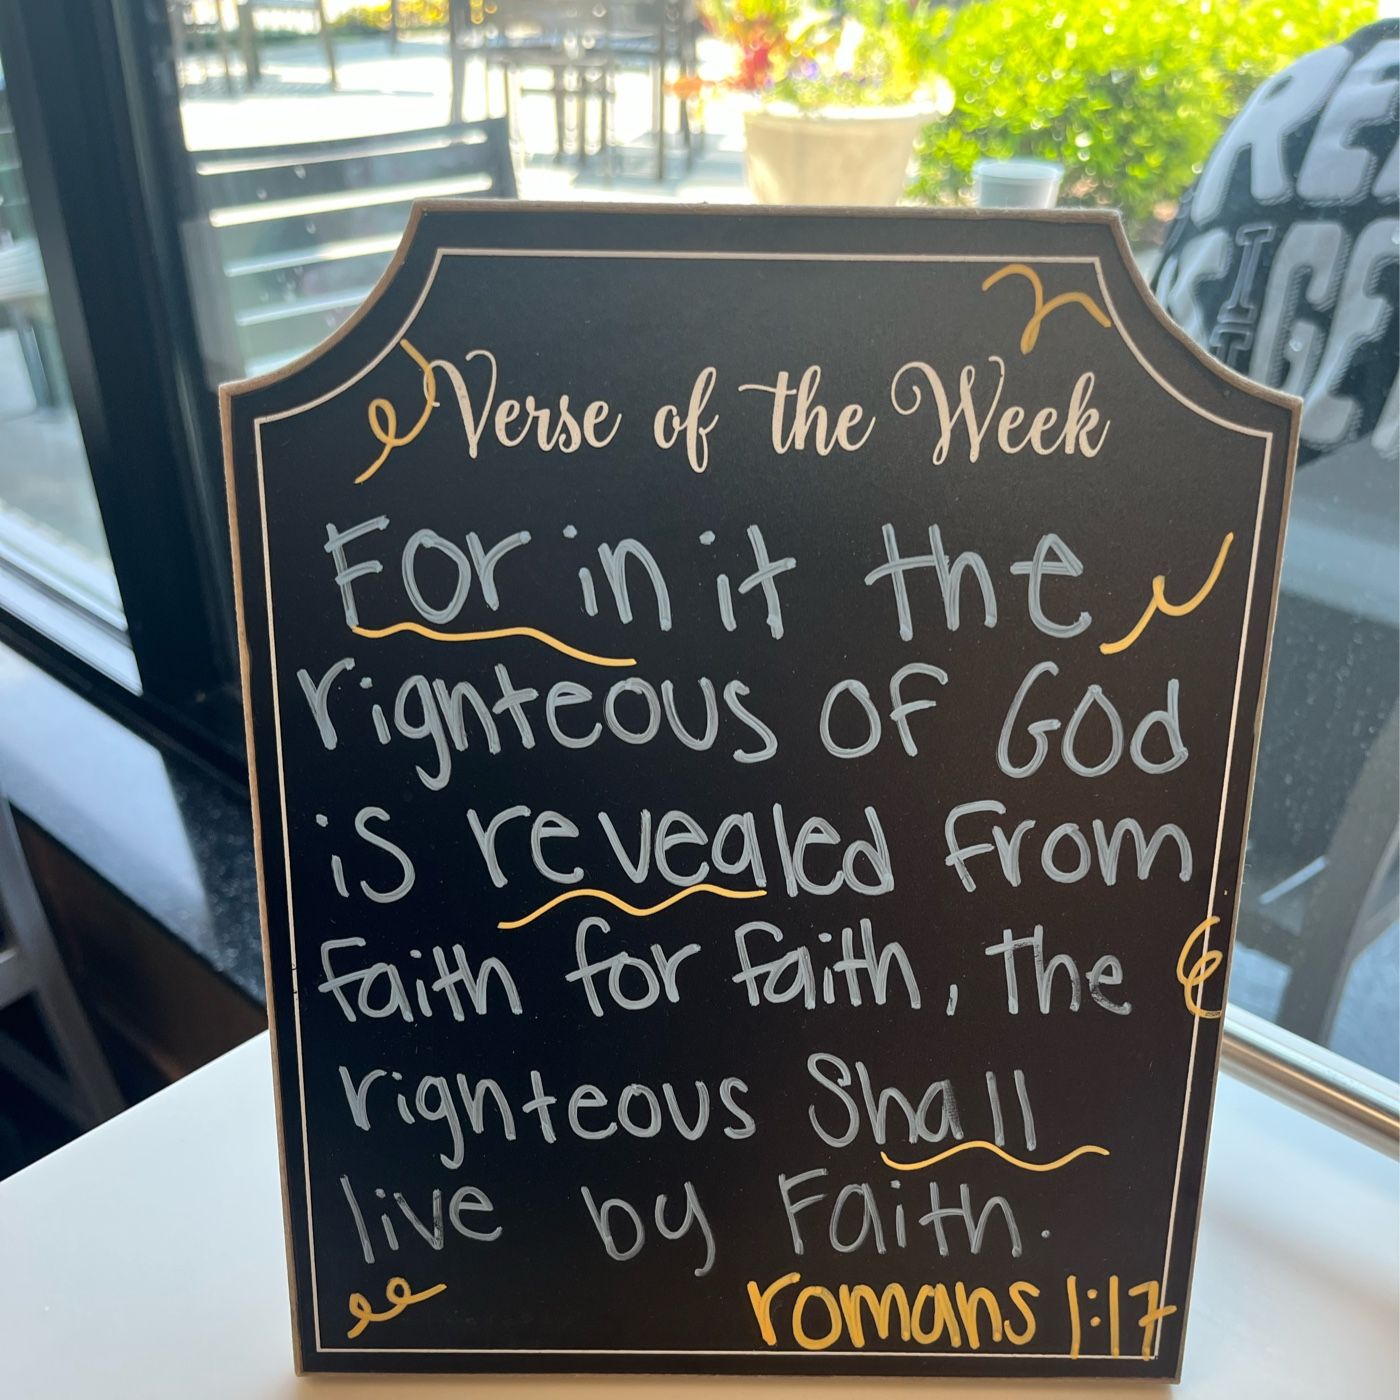 Verse of the Week
For in it the
righteous of God
is revealed from
faith for faith, the
righteous Shall
live by Faith.
romans 1:17